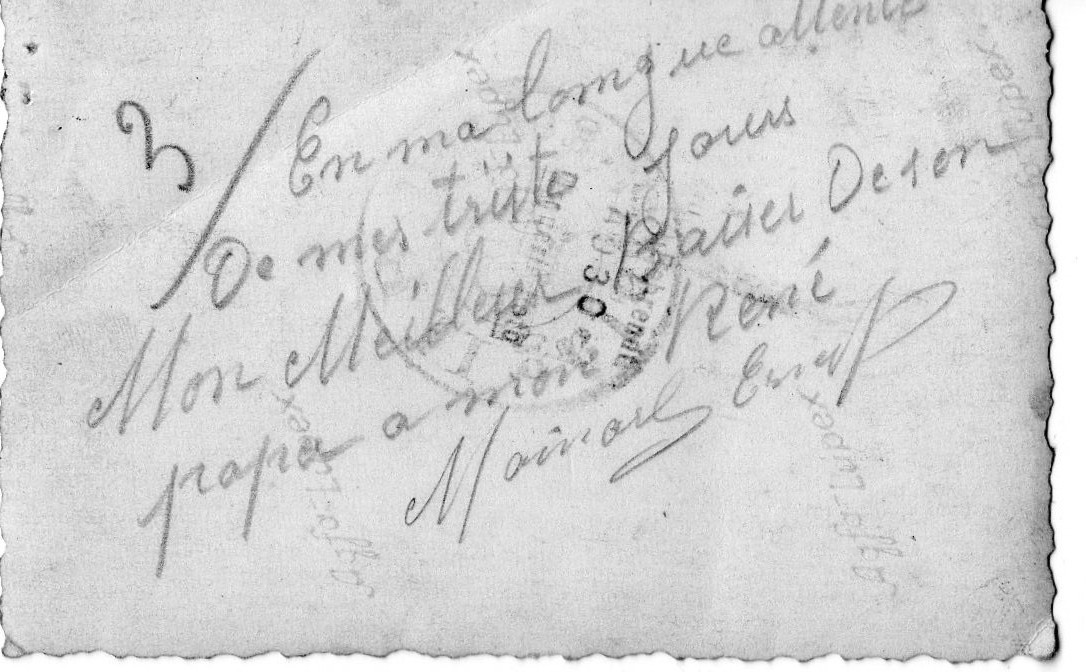 3/ En ma longue attente
De mes triste Jours
Mon Meilleur Baiser De son
papa a mon René
Moinard Ernest
30
Agfa-Lupex
Agfa-Lupex